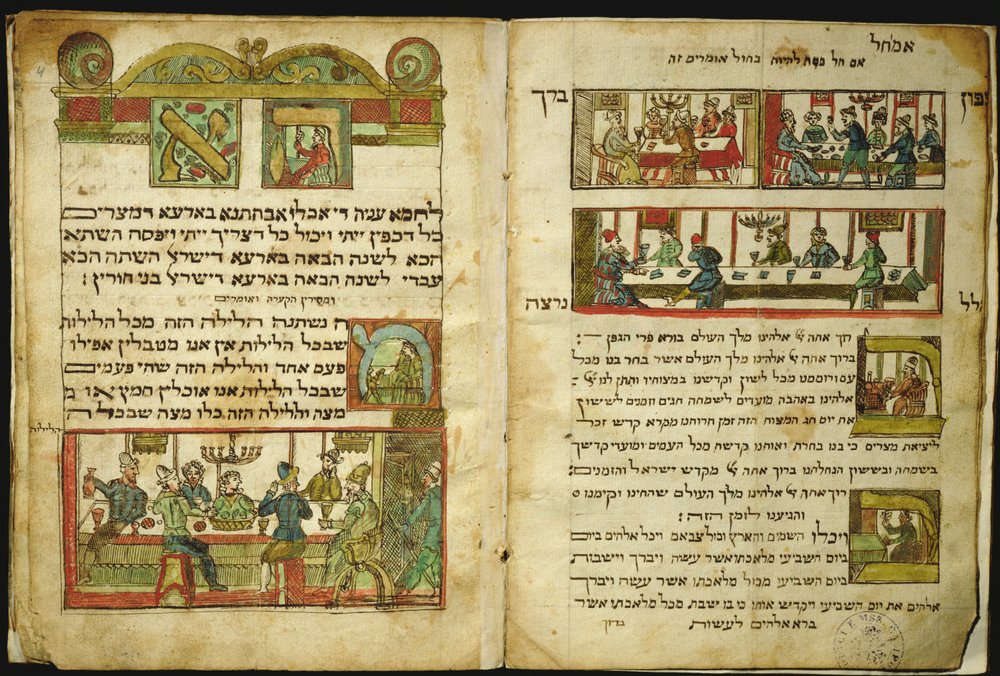 אם חל
אם חל פסח להיות בחול אומרים זה
צפון ברך
הלל נרצה
רוך אתה יי אלהינו מלך העולם בורא פרי הגפן :
ברוך אתה יי אלהינו מלך העולם אשר בחר בנו מכל
עם ורוממנו מכל לשון וקדשנו במצותיו ותתן לנו יי
אלהינו באהבה מועדים לשמחה חגים וזמנים לששון
את יום חג המצות הזה זמן חרותנו מקרא קדש זכר
ליציאת מצרים כי בנו בחרת ואותנו קדשת מכל העמים ומועדי קדשך
בשמחה ובששון הנחלתנו ברוך אתה יי מקדש ישראל והזמנים :
רוך אתה יי אלהינו מלך העולם שהחיינו וקיימנו
והגיענו לזמן הזה :
ויכלו השמים והארץ וכל צבאם ויכל אלהים ביום
ביום השביעי מלאכתו אשר עשה וישבות
ביום השביעי מכל מלאכתו אשר עשה ויברך
אלהים את יום השביעי ויקדש אותו כי בו שבת מכל מלאכתו אשר
ברא אלהים לעשות
ברוך
הא
לחמא עניה די אכלו אבהתנא בארעא דמצרים
כל דכפין ייתי ויכול כל דצריך ייתי ויפסח השתא
הכא לשנה הבאה בארעא דישראל השתה הכא
עבדי לשנה הבאה בארעא דישראל בני חורין :
ומסירין הקערה ואומרים
מ
ה נשתנה הלילה הזה מכל הלילות
שבכל הלילות אין אנו מטבלין אפילו
פעם אחד והלילה הזה שתי פעמים
שבכל הלילות אנו אוכלין חמץ או מ
מצה והלילה הזה כלו מצה שבכל ה
הלילות